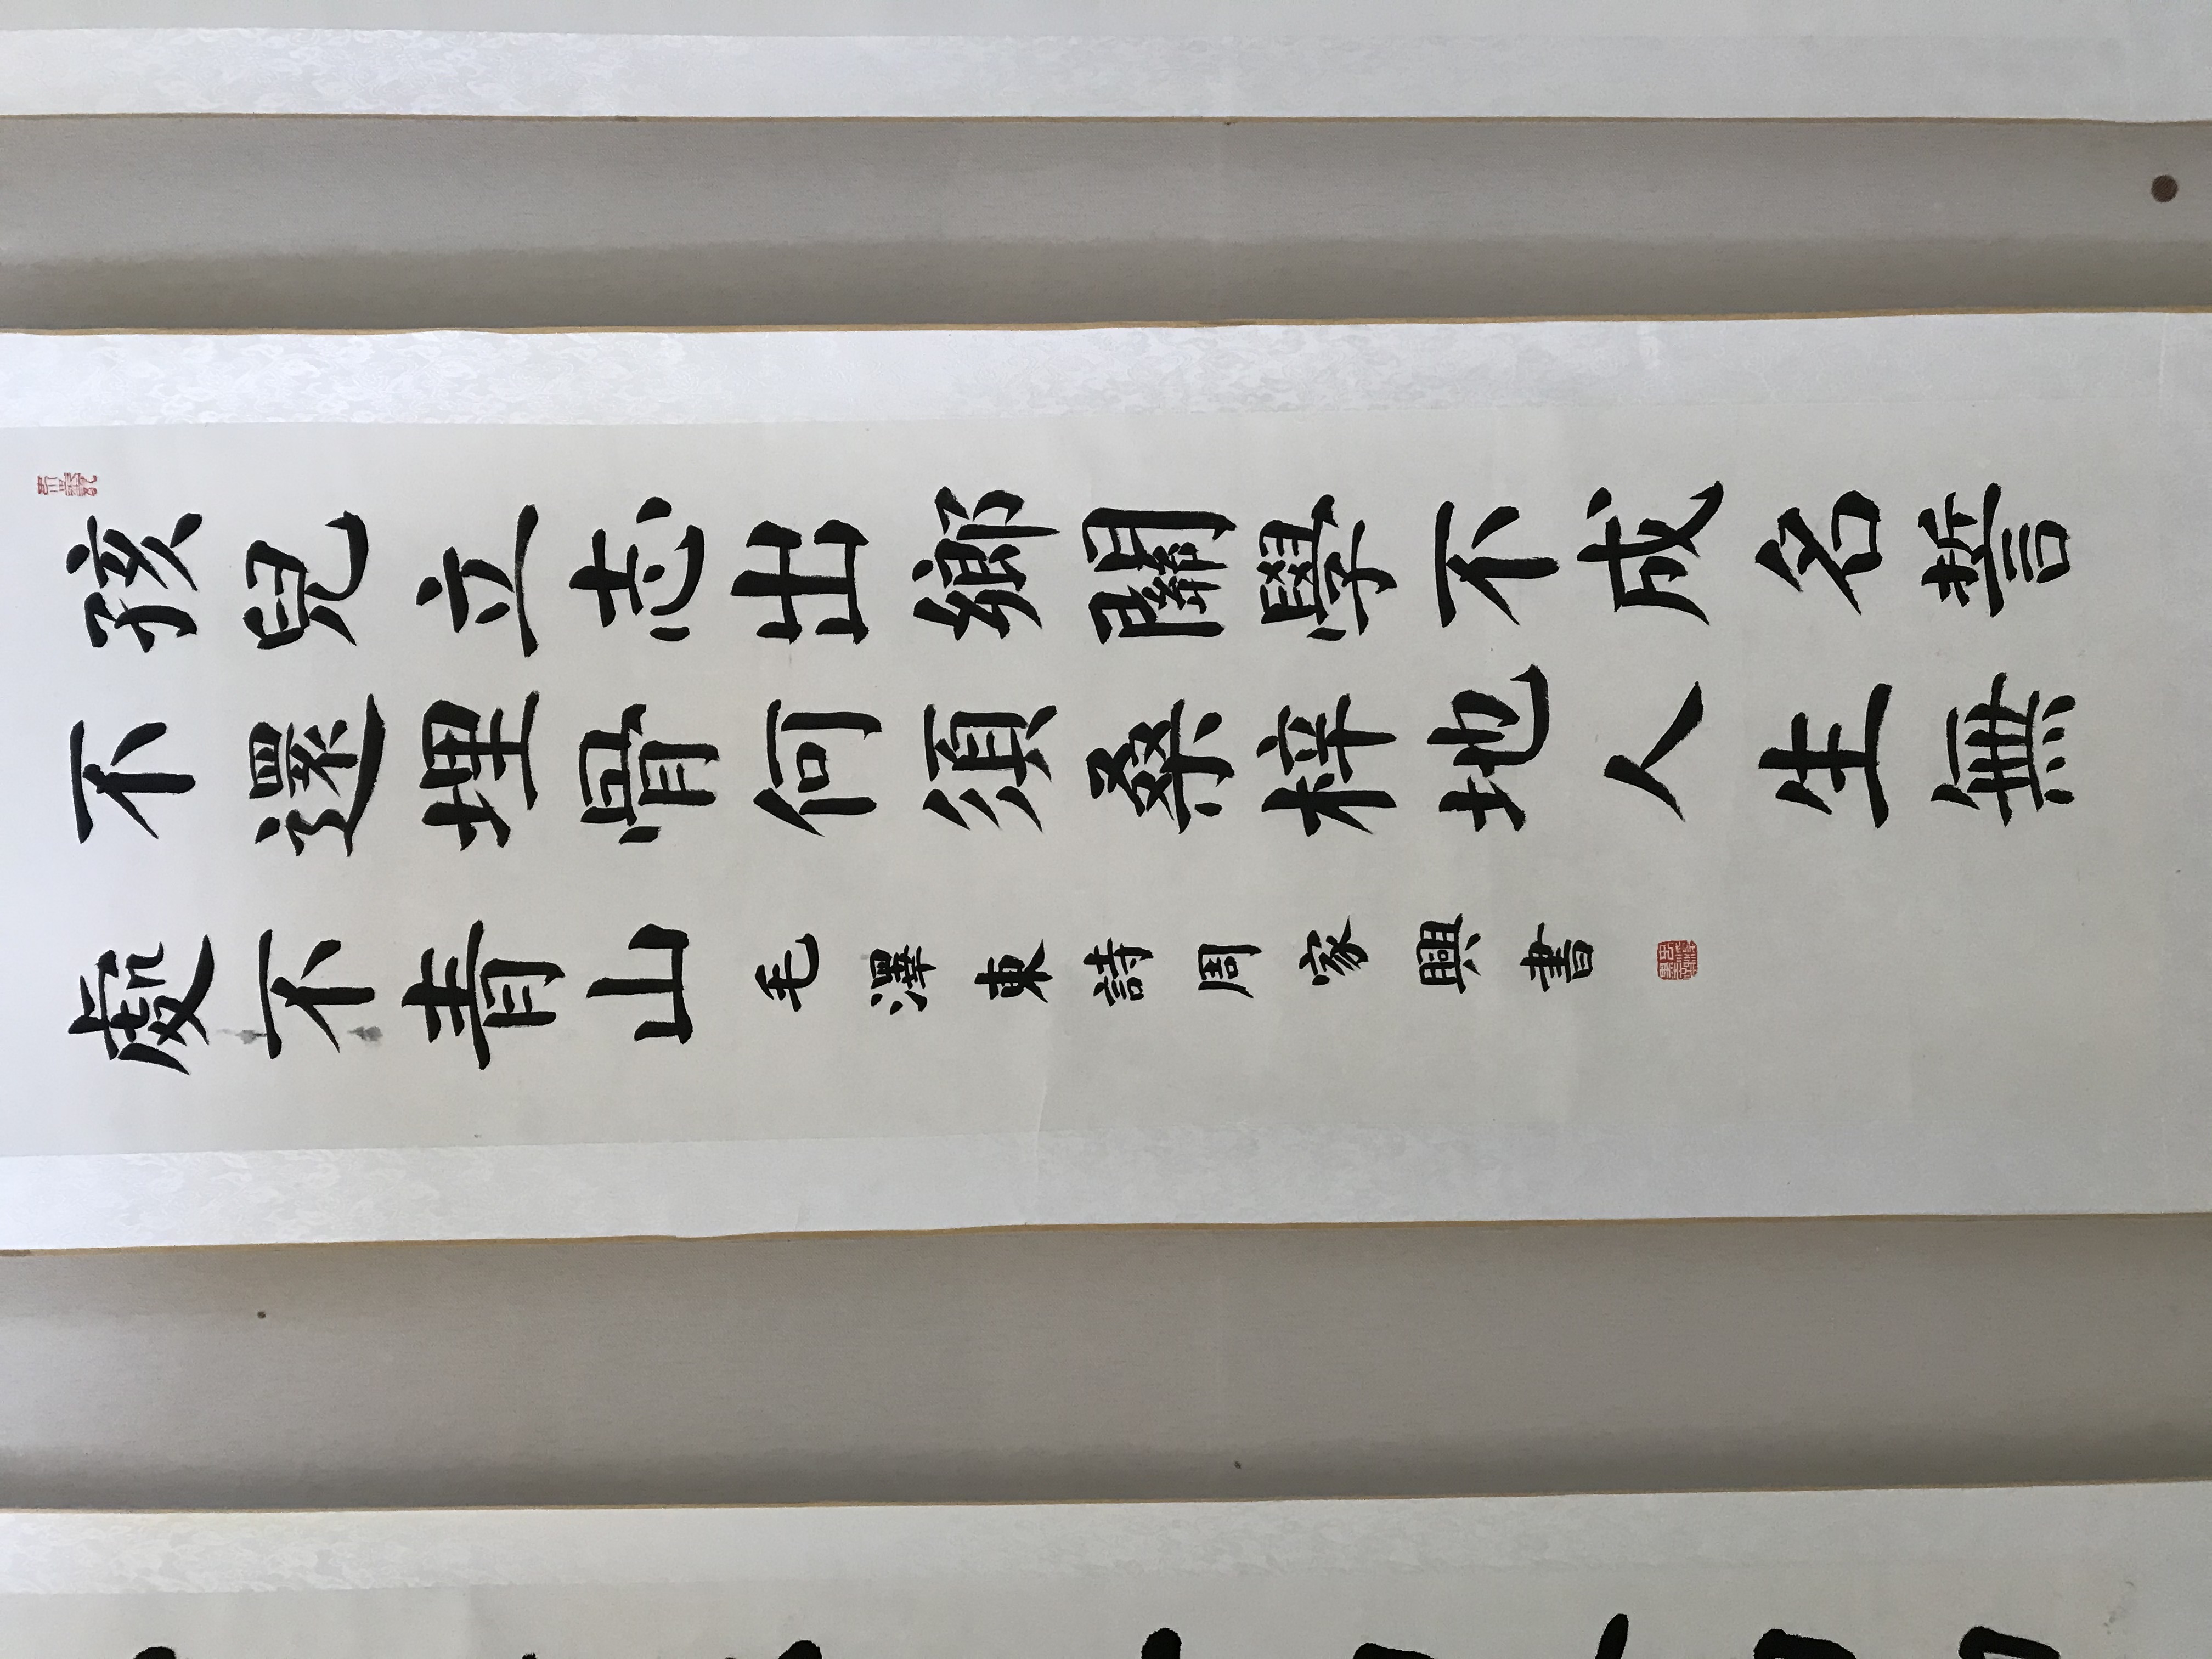 孩兒立志出鄉關學不成名誓
不還埋骨何須桑梓地人生無
處不青山毛澤東詩周家興書